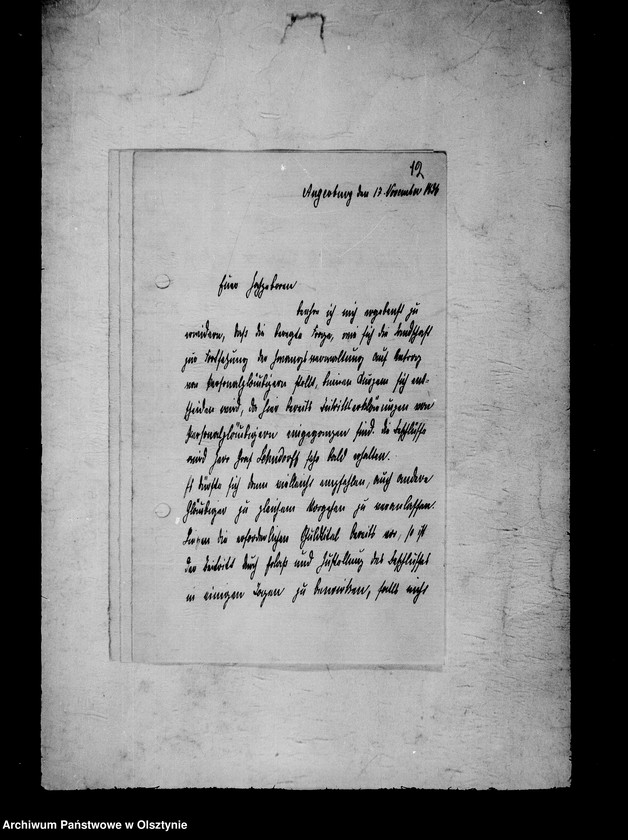 12
Angerburg den 13. November
Euer Hochgeboren
beehre ich mich ergebenst zu
erwidern, daß die beregte Frage, wie sich die Landschaft
zur Fortsetzung der Zwangsverwaltung auf Antrag
von Personalgläubigern stellt, binnen Kurzem sich ent-
scheiden wird, da hier bereits Beitrittserklärungen von
Personalgläubigern eingegangen sind. Die Beschlüsse
wird Herr Graf Lehndorff sehr bald erhalten.
Es dürfte sich dann vielleicht empfehlen, auch andere
Gläubiger zu gleichem Vorgehen zu veranlassen.
Liegen die erforderlichen Schuldtitel bereits vor, so ist
der Beitritt durch Erlaß und Zustellung des Beschlusses
in einigen Tagen zu bewirken, falls nicht
Archiwum Państwowe w Olsztynie